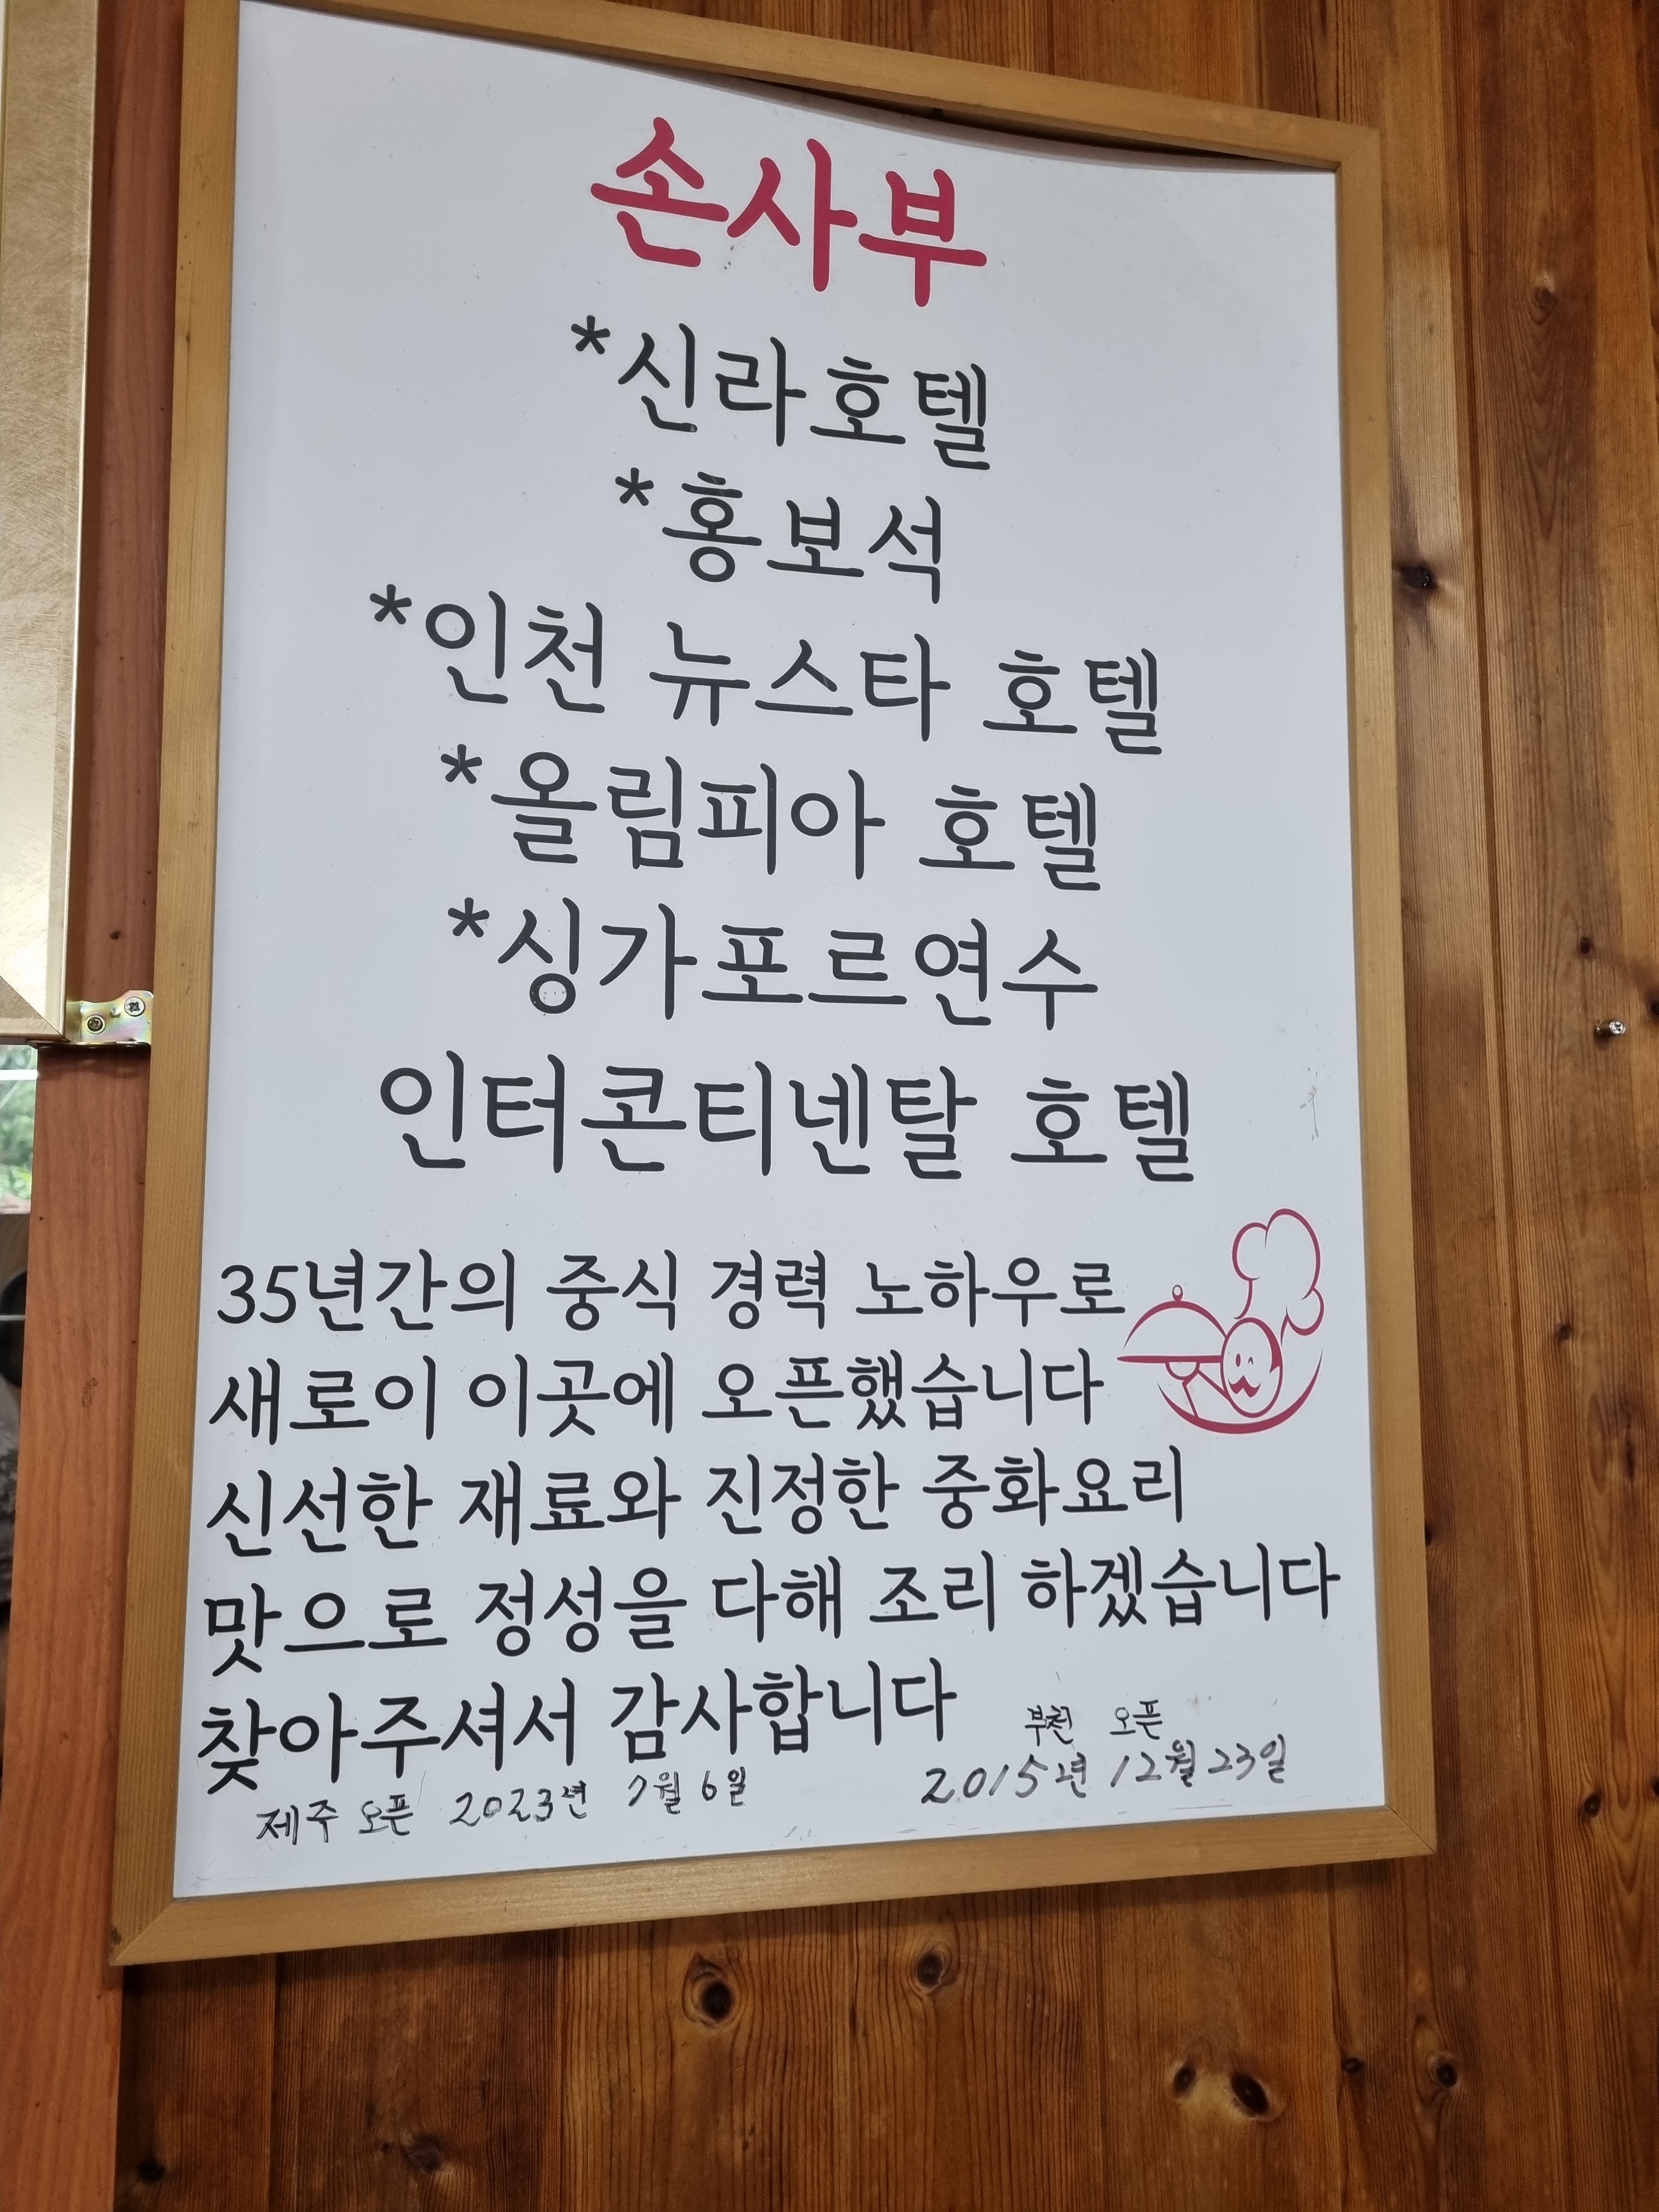 손사부
*신라호텔
*홍보석
*인천 뉴스타 호텔
*올림피아 호텔
*싱가포르연수
인터콘티넨탈 호텔
35년간의 중식 경력 노하우로
새로이 이곳에 오픈했습니다
신선한 재료와 진정한 중화요리
맛으로 정성을 다해 조리 하겠습니다
찾아주셔서 감사합니다
부천 오픈
2015년 12월 23일
제주 오픈 2023년 7월 6일